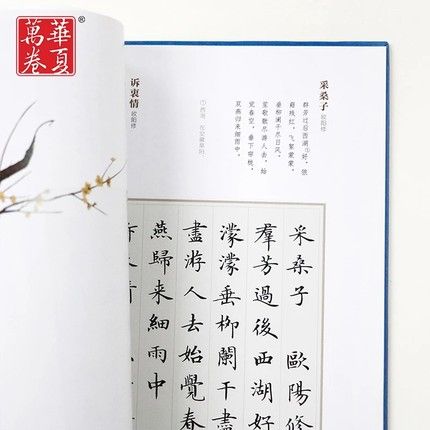 華夏
萬卷®
采桑子 欧阳修
群芳过后西湖①好，狼
籍残红，飞絮濛濛，
垂柳阑干尽日风。
笙歌散尽游人去，始
觉春空，垂下帘栊，
双燕归来细雨中。
①西湖：在安徽阜阳。
诉衷情 欧阳修
采桑子 歐陽修
羣芳過後西湖好
濛濛垂柳闌干盡
盡游人去始覺春
燕歸来細雨中